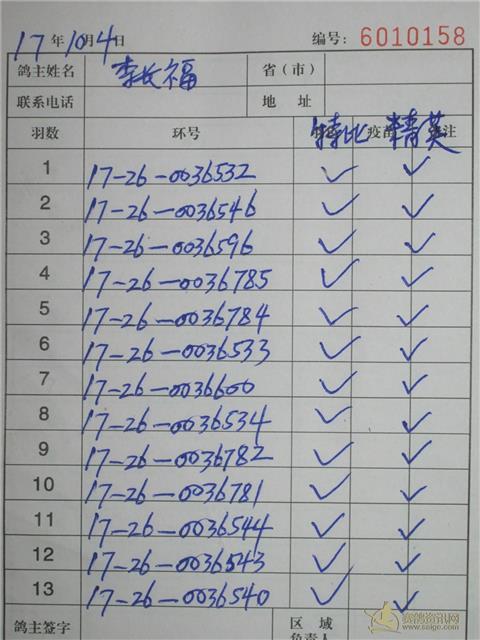 17年10月4日 编号: 6010158
鸽主姓名 李长福 省（市）
联系电话 地 址
羽数 环号 特比 疫苗 精英 注
1 17-26-0036532 ✓ ✓
2 17-26-0036546 ✓ ✓
3 17-26-0036596 ✓ ✓
4 17-26-0036785 ✓ ✓
5 17-26-0036784 ✓ ✓
6 17-26-0036533 ✓ ✓
7 17-26-0036600 ✓ ✓
8 17-26-0036534 ✓ ✓
9 17-26-0036782 ✓ ✓
10 17-26-0036781 ✓ ✓
11 17-26-0036544 ✓ ✓
12 17-26-0036543 ✓ ✓
13 17-26-0036540 ✓ ✓
鸽主签字 区 域
负责人
赛鸽资讯网
www.saige.com